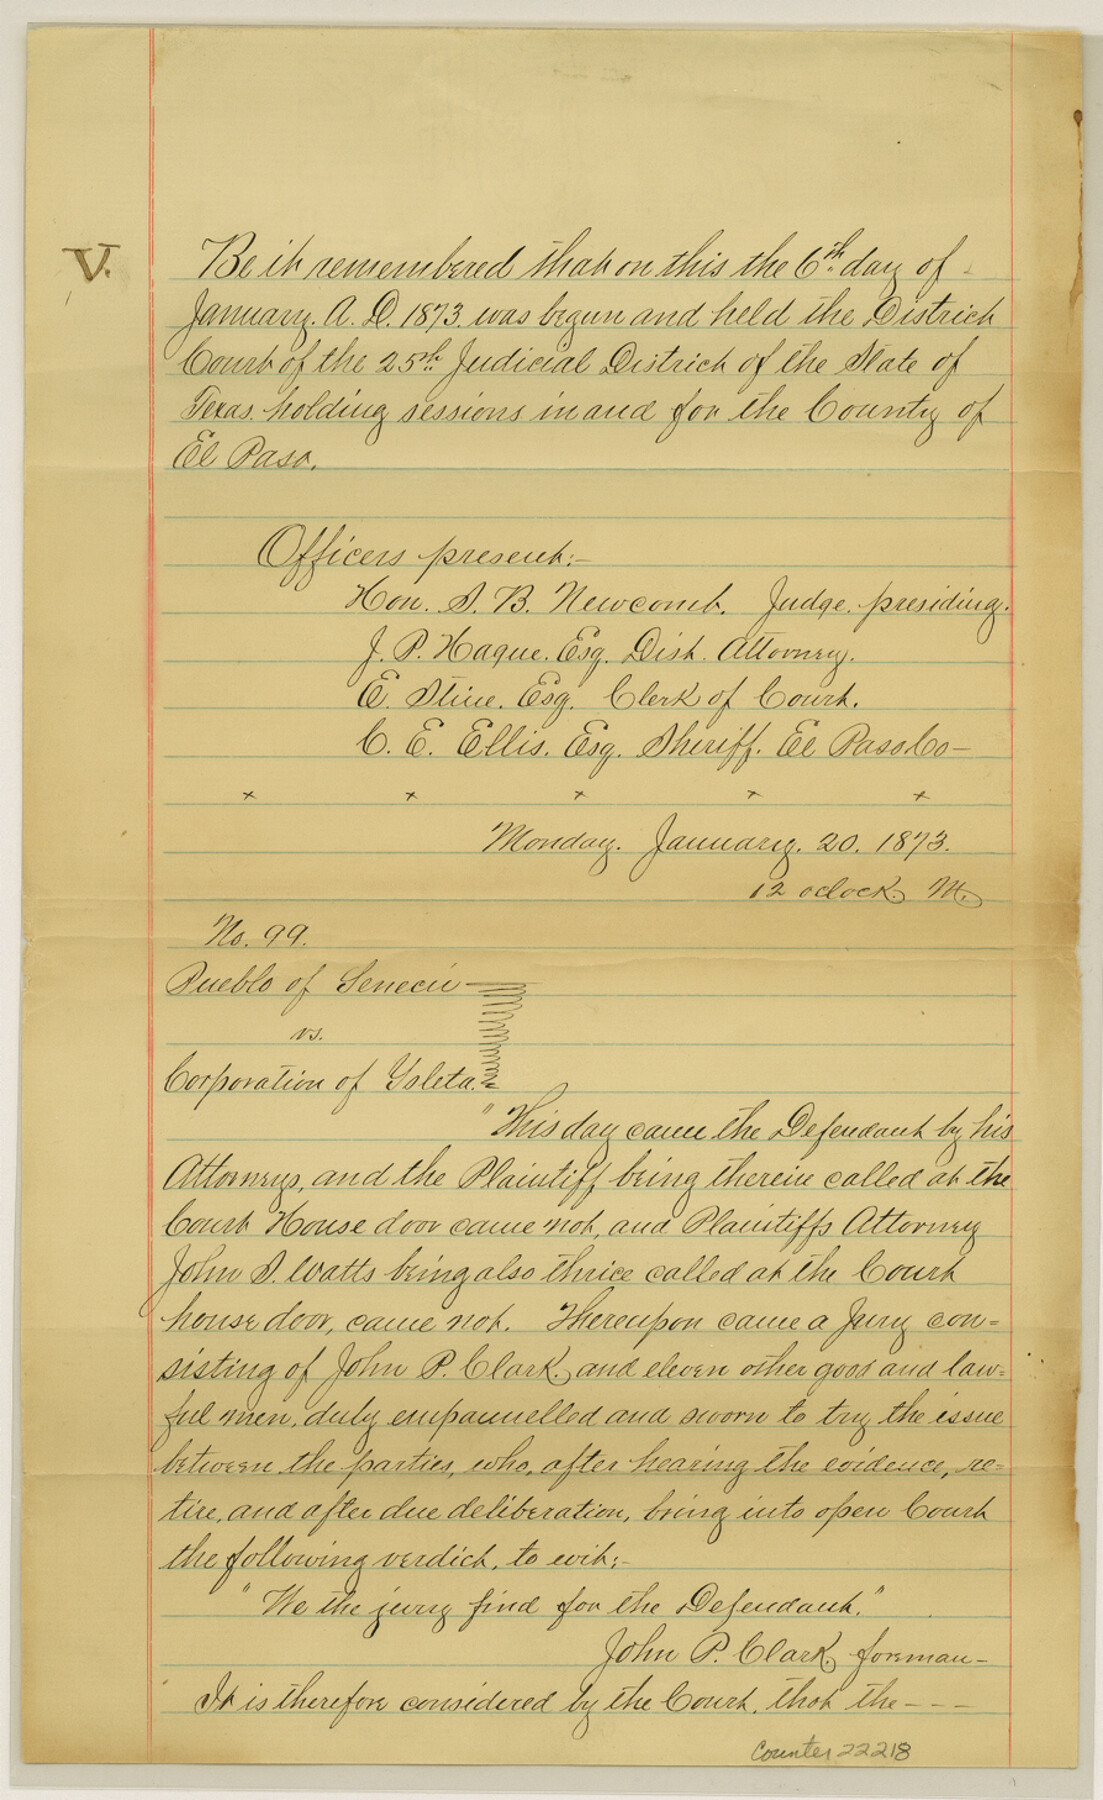 V.
Be it remembered that on this the 6th day of
January. A. D. 1873. was begun and held the District
Court of the 25th Judicial District of the State of
Texas. holding sessions in and for the County of
El Paso.
Officers present:-
Hon. S. B. Newcomb. Judge. presiding.
J. P. Hague. Esq. Dist. Attorney.
E. Stine. Esq. Clerk of Court.
C. E. Ellis. Esq. Sheriff. El Paso Co-
x x x x x
Monday. January. 20. 1873.
12 oclock. M.
No. 99.
Pueblo of Senecu
vs.
Corporation of Ysleta.
"This day came the Defendant by his
Attorneys, and the Plaintiff being therein called at the
Court House door came not, and Plaintiffs Attorney
John S. Watts being also thrice called at the Court
house door, came not. Thereupon came a Jury con=
sisting of John P. Clark. and eleven other good and law=
ful men, duly empannelled and sworn to try the issue
between the parties, who, after hearing the evidence, re=
tire, and after due deliberation, bring into open Court
the following verdict, to wit:-
"We the jury find for the Defendant."
John P. Clark. foreman-
It is therefore considered by the Court, that the - - -
Counter 22218